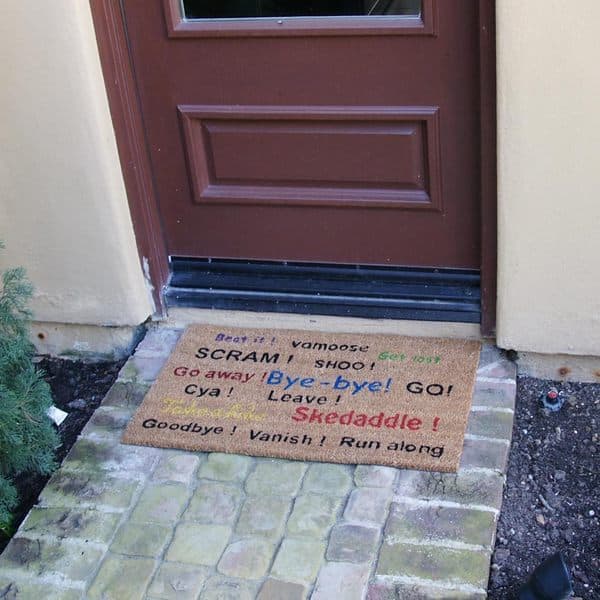 Beat it ! vamoose Get lost
SCRAM ! SHOO !
Go away ! Bye-bye! GO!
Cya ! Leave !
Take a hike Skedaddle !
Goodbye ! Vanish ! Run along